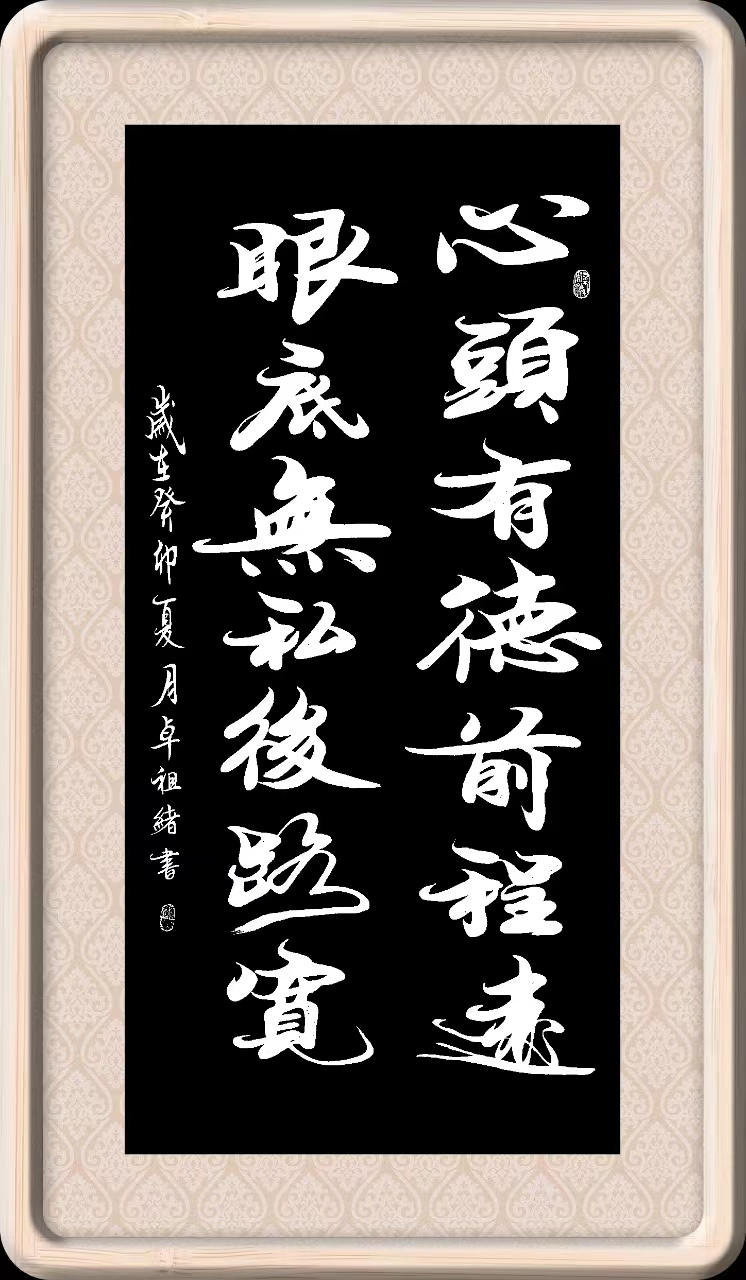 心頭有德前程遠
眼底無私後路寬
歲在癸卯夏月卓祖緒書